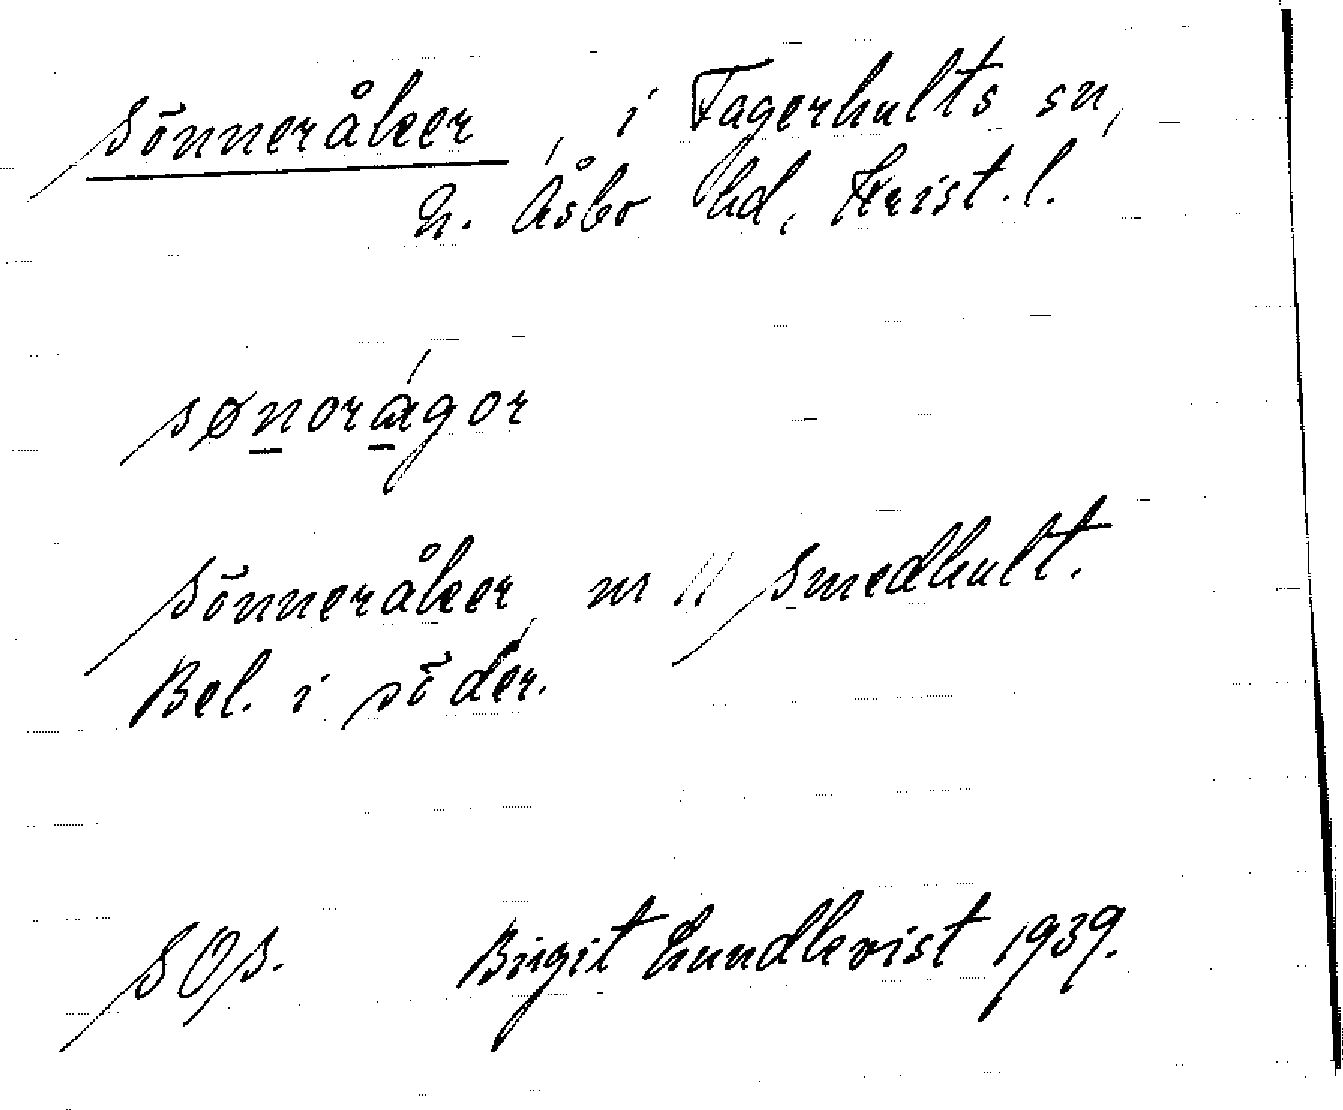 Sönneråker, i Fagerhults sn,
N. Åsbo hd, Krist. l.
sønorágor
Sönneråker, m // Smedhult.
Bel. i söder.
SOS. Birgit Lundkvist 1939.